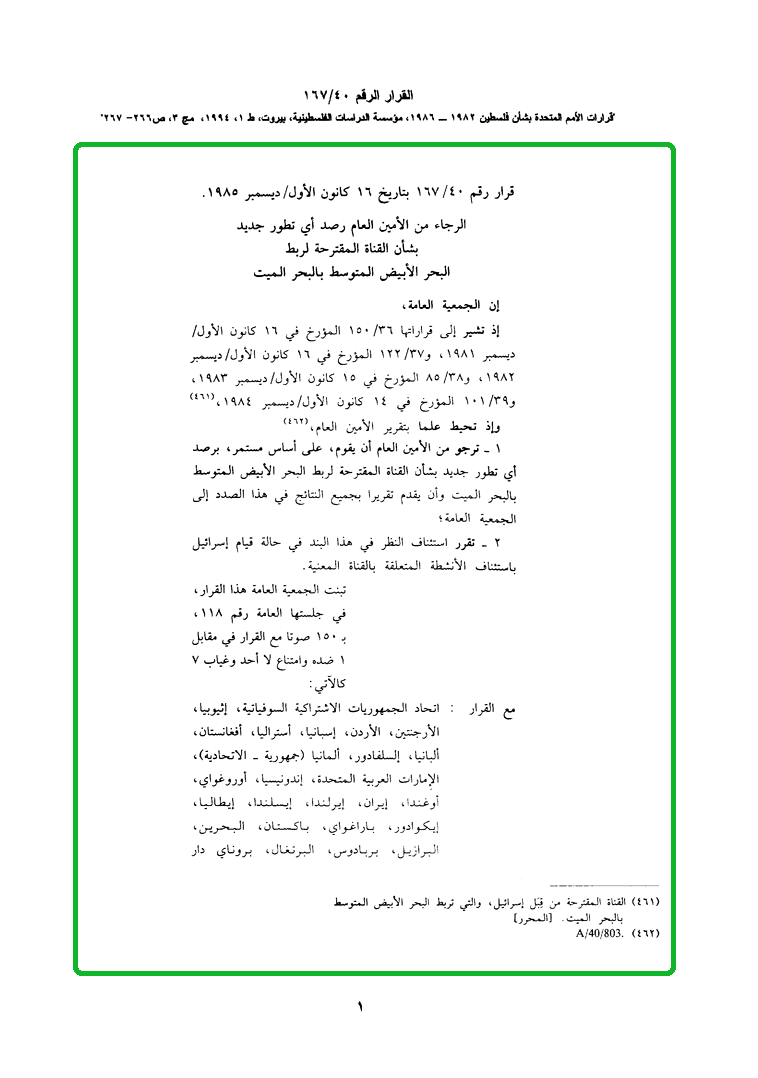 القرار الرقم ١٦٧/٤٠
"قرارات الأمم المتحدة بشأن فلسطين ١٩٨٢ – ١٩٨٦، مؤسسة الدراسات الفلسطينية، بيروت، ط ١، ١٩٩٤، مج ٣، ص٢٦٦- ٢٦٧"
قرار رقم ١٦٧/٤٠ بتاريخ ١٦ كانون الأول/ديسمبر ١٩٨٥.
الرجاء من الأمين العام رصد أي تطور جديد
بشأن القناة المقترحة لربط
البحر الأبيض المتوسط بالبحر الميت
إن الجمعية العامة،
إذ تشير إلى قراراتها ١٥٠/٣٦ المؤرخ في ١٦ كانون الأول/
ديسمبر ١٩٨١، و١٢٢/٣٧ المؤرخ في ١٦ كانون الأول/ديسمبر
١٩٨٢، و٨٥/٣٨ المؤرخ في ١٥ كانون الأول/ديسمبر ١٩٨٣،
و١٠١/٣٩ المؤرخ في ١٤ كانون الأول/ديسمبر ١٩٨٤،(٤٦١)
وإذ تحيط علما بتقرير الأمين العام،(٤٦٢)
١ ـ ترجو من الأمين العام أن يقوم، على أساس مستمر، برصد
أي تطور جديد بشأن القناة المقترحة لربط البحر الأبيض المتوسط
بالبحر الميت وأن يقدم تقريرا بجميع النتائج في هذا الصدد إلى
الجمعية العامة؛
٢ ـ تقرر استئناف النظر في هذا البند في حالة قيام إسرائيل
باستئناف الأنشطة المتعلقة بالقناة المعنية.
تبنت الجمعية العامة هذا القرار،
في جلستها العامة رقم ١١٨،
بـ ١٥٠ صوتا مع القرار في مقابل
١ ضده وامتناع لا أحد وغياب ٧
كالآتي:
مع القرار : اتحاد الجمهوريات الاشتراكية السوفياتية، إثيوبيا،
الأرجنتين، الأردن، إسبانيا، أستراليا، أفغانستان،
ألبانيا، إلسلفادور، ألمانيا (جمهورية ـ الاتحادية)،
الإمارات العربية المتحدة، إندونيسيا، أوروغواي،
أوغندا، إيران، إيرلندا، إيسلندا، إيطاليا،
إيكوادور، باراغواي، باكستان، البحرين،
البرازيل، بربادوس، البرتغال، بروناي دار
(٤٦١) القناة المقترحة من قِبَل إسرائيل، والتي تربط البحر الأبيض المتوسط
بالبحر الميت. [المحرر]
(٤٦٢) A/40/803.
١